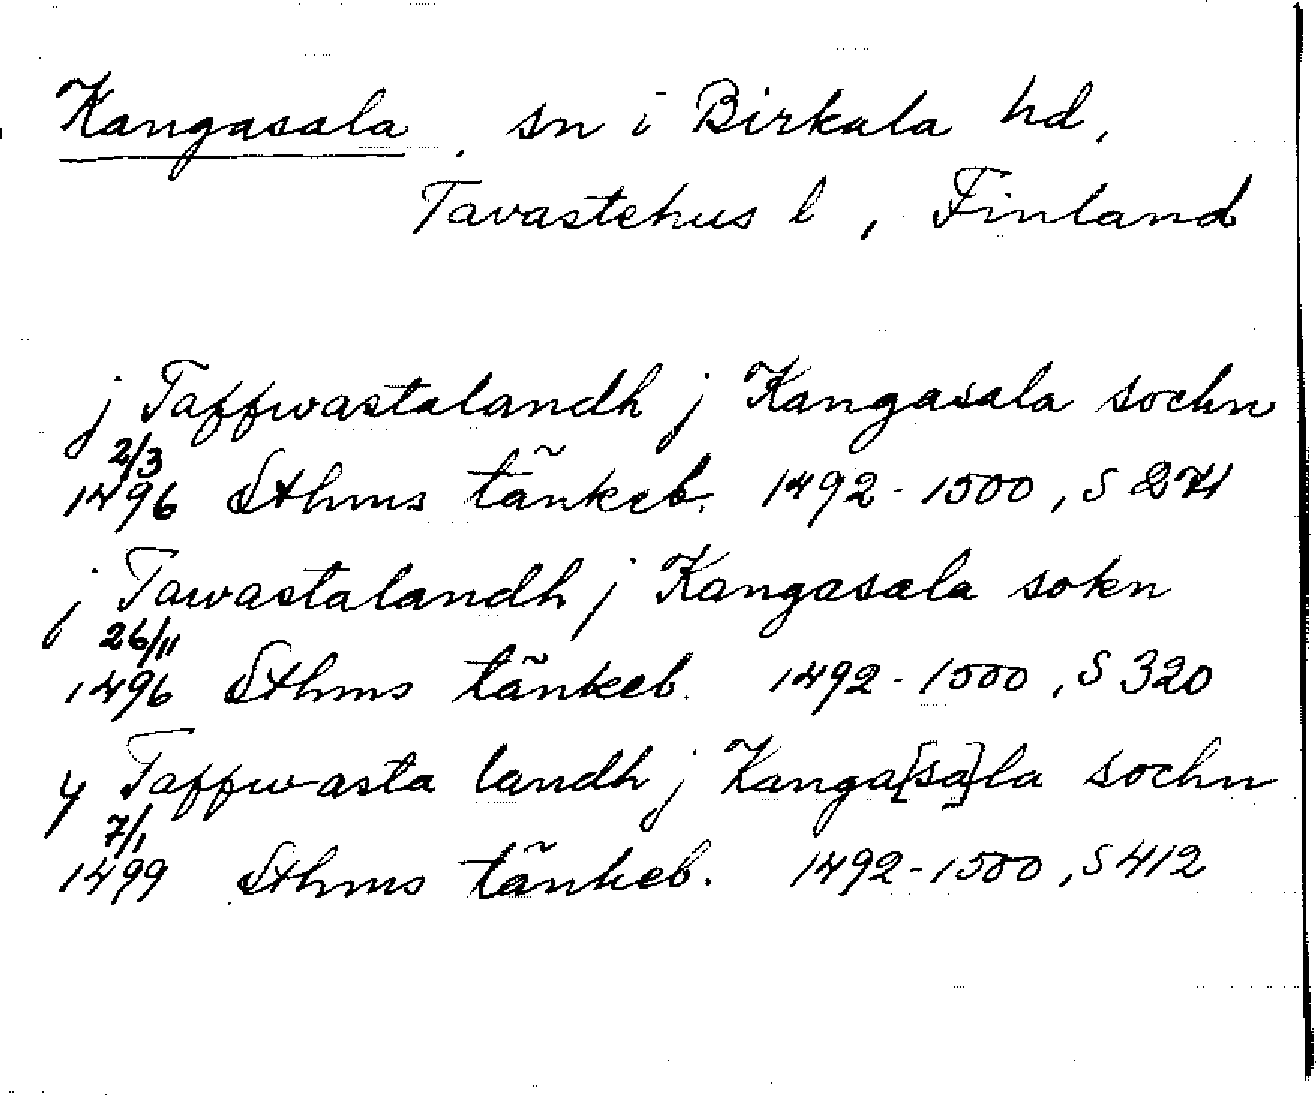 Kangasala, sn i Birkala hd,
Tavastehus l, Finland
j Taffwastalandh j Kangasala sochn
2/3
1496 Sthms tänkeb. 1492-1500, S 274
j Tawastalandh j Kangasala sokn
26/11
1496 Sthms tänkeb. 1492-1500, S 320
y Taffwasta landh j Kanga[sa]la sochn
7/1
1499 Sthms tänkeb. 1492-1500, S 412